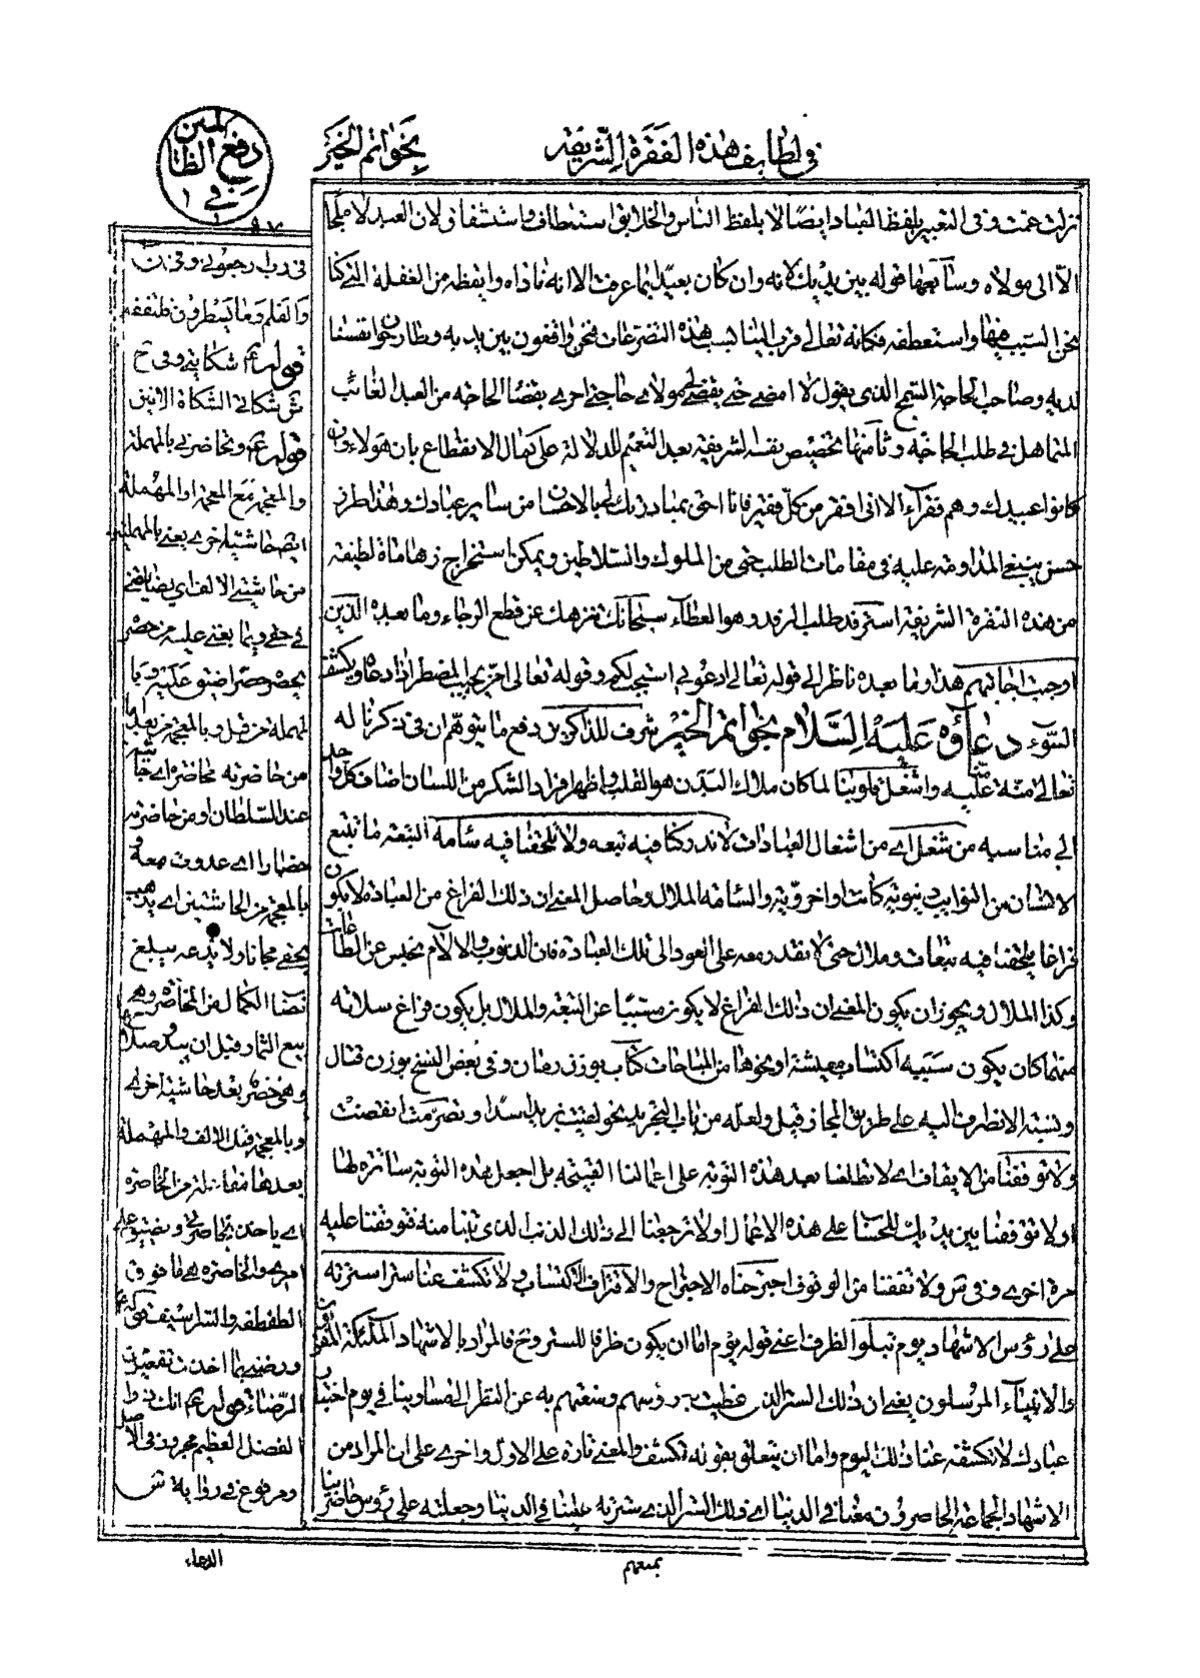 في لطايف هذه الفقرة الشريفة
بخواتم الخير
في دفع الظالمين
نزلت عمت وفي التعبير بلفظ العباد ايضا لا بلفظ الناس والخلايق استعطاف واستشفاق لان العبد لا ملجا
الا الى مولاه وسابعها قوله بين يديك لانه وان كان بعيدا بما عرفت الا انه ناداه وايقظه من الغفلة التي كنا
نحن السبب فيها واستعطفه فكانه تعالى قرب الينا بسبب هذه التضرعات فنحن واقفون بين يديه ومطارحوا نفسنا
لديه وصاحب الحاجة السمج الذي يقول لا امضي حتى يقضي مولاي حاجتي احرى بقضاء الحاجة من العبد الغائب
المتماهل في طلب الحاجة وثامنها تخصيص نفسه الشريفة بعد التعميم للدلالة على كمال الانقطاع بان هؤلاء وان
كانوا عبيدك وهم فقرآء الا اني افقر من كل فقير فانا احق بمبادرتك الي بالاحسان من ساير عبادك وهذا طرز
حسن ينبغي المداومة عليه في مقامات الطلب حتى من الملوك والسلاطين ويمكن استخراج زهاء مأة لطيفة
من هذه الفقرة الشريفة استرفد طلب الرفد وهو العطآء سبحانك ننزهك عن قطع الرجاء وما بعده الذين
اوجبت اجابتهم هذا وما بعده ناظر الى قوله تعالى ادعوني استجب لكم وقوله تعالى امن يجيب المضطر اذا دعاه ويكشف
السوء دعاؤه عليه السلام بخواتم الخير شرف للذاكرين دفع ما يتوهم ان في ذكرنا له
تعالى منة عليه واشغل قلوبنا لما كان ملاك البدن هو القلب اظهر افراد الشكر من اللسان اضاف كل واحد
الى مناسبه من شغل اي من اشغال العبادات لا تدركنا فيه تبعه ولا تلحقنا فيه سامة التبعة ما يتبع
الانسان من النوايب دنيوية كانت او اخروية والسامة الملال وحاصل المعنى ان ذلك الفراغ من العبادة لا يكون
فراغا يلحقنا فيه تبعات وملال حتى لا نقدر معه على العود الى تلك العبادة فان الذنوب والالام تحبس عن الطاعات
وكذا الملال ويجوز ان يكون المعنى ان ذلك الفراغ لا يكون مسببا عن التبعة والملال بل يكون فراغ سلامة
منهما كان يكون سببه اكتساب معيشة او نحوها من المباحات كتاب بوزن رمان وفي بعض النسخ بوزن قتال
ونسبة الانصراف اليه على طريق المجاز وقيل ولعله من باب التجريد نحو لقيت بزيد اسدا وتصرمت انقضت
ولا توقفنا من الايقاف اي لا تطلعنا بعد هذه التوبة على اعمالنا القبيحة بل اجعل هذه التوبة ساترة لها
او لا توقفنا بين يديك للحساب على هذه الاعمال او لا ترجعنا الى ذلك الذنب الذي تبنا منه فتوقفنا عليه
مرة اخرى وفي س ولا تقفنا من الوقوف اجترحناه الاجتراح والاقتراف الاكتساب ولا تكشف عنا سترا سترته
على رؤس الاشهاد يوم تبلو الظرف اعني قوله يوم اما ان يكون ظرفا للستر وح فالمراد بالاشهاد الملئكة المقربون
والانبيآء المرسلون يعني ان ذلك الستر الذي غطيت به رؤسهم ومنعتهم به عن النظر الى مساوينا في يوم اختبار
عبادك لا تكشفه عنا ذلك اليوم واما ان يتعلق بقوله تكشف والمعنى تارة على الاول واخرى على ان المراد من
الاشهاد الجماعة الحاضرون معنا في الدنيا اي ذلك الستر الذي سترته علينا في الدنيا وجعلته على رؤس حاضرينا
بمنعهم
والقلم وما يسطرون فلتفقه
قوله ع شكايتي وفي خ
ش شكاتي الشكاة الانين
قوله ع وتحاضرني بالمهملة
والمعجمة مع المعجمة او المهملة
من حاشيتي الالف اي
بالمهملة من قبل وبالمعجمة من بعدها
من حاضرته محاضرة اي جاثيته
عند السلطان او من حاضرته
حضارا اي عدوت معه
بالمعجمة من الحاشيتين اي يذهب
بحقي مجانا ولا يدعه يبلغ
نصاب الكمال من المخاضرة وهي
بيع الثمار قبل ان يبدو صلاحها
وهي خضر بعد حاشية اخرى
وبالمعجمة قبل الالف والمهملة
بعدها مفاعلة من الخاصرة
اي ياخذ بخاصرتي ويضيق علي
امري والخاصرة هي ما فوق
الطفطفة والشراسيف
ورضني بما اخذت
الرضا قوله ع انك ذو
الفضل العظيم مجرور في الاصل
ومرفوع في رواية س
الدعاء